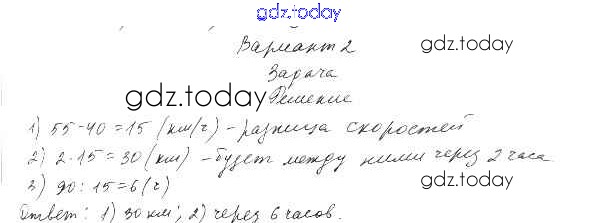 gdz.today
Вариант 2
gdz.today
Задача
gdz.today
Решение
1) 55-40=15 (км/ч) - разница скоростей
2) 2·15=30 (км) - будет между ними через 2 часа
gdz.today
3) 90:15=6 (ч)
Ответ: 1) 30 км; 2) через 6 часов.